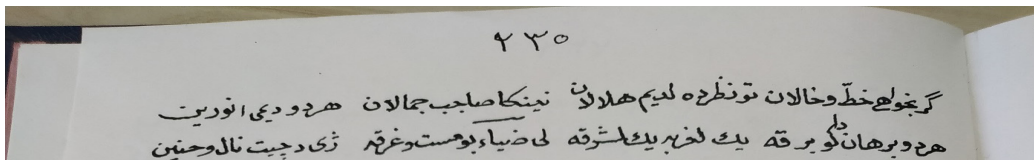 ٢٣٥
گر بخواهی خطّ و خالان تو نظر ده لدیم هلالان نینکا صاحب جمالان هردو دیمی انورین
هردو برهان دلو برقه یك لغربه یك لشرقه لی ضیاء بو مست و غرقه ژی دچیت نال و حنین